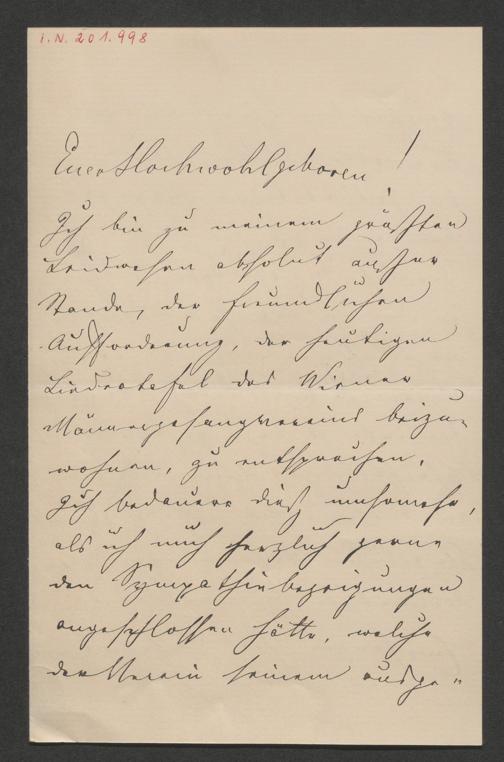 I.N. 201.998
Euer Hochwohlgeboren!
Ich bin zu meinem größten
Leidwesen absolut außer
Stande, der freundlichen
Aufforderung, der heutigen
Liedertafel des Wiener
Männergesangvereins beizu-
wohnen, zu entsprechen.
Ich bedauere dieß umsomehr,
als ich mich herzlich gerne
den Sympathiebezeigungen
angeschlossen hätte, welche
der Verein seinem ausge-